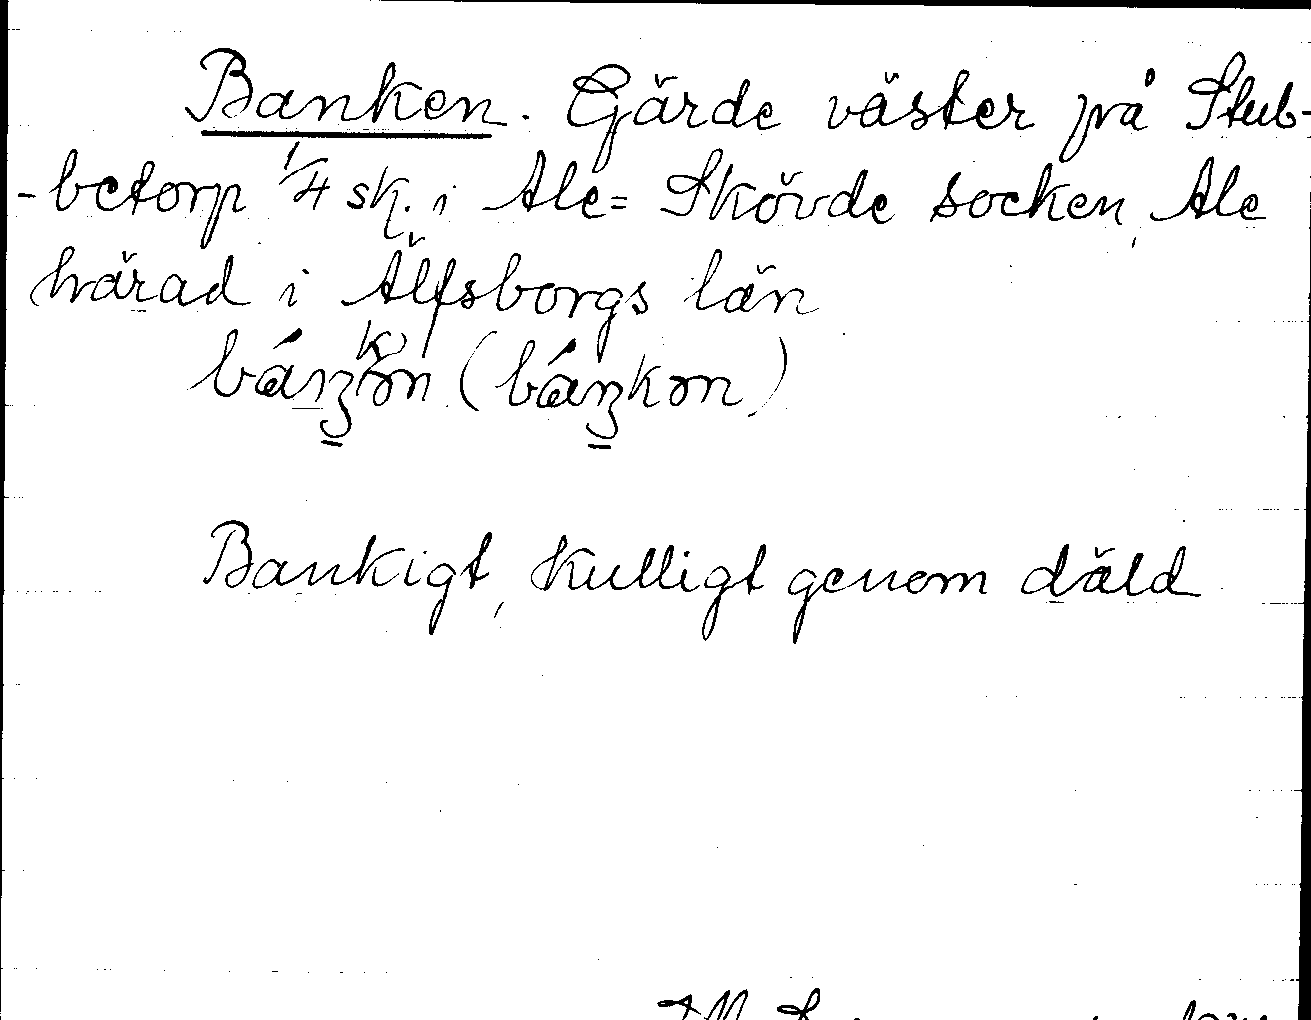 Banken. Gärde väster på Stub-
-betorp 1/4 sk. i Ale=Skövde socken, Ale
härad i Älfsborgs län
Bankigt, kulligt genom däld